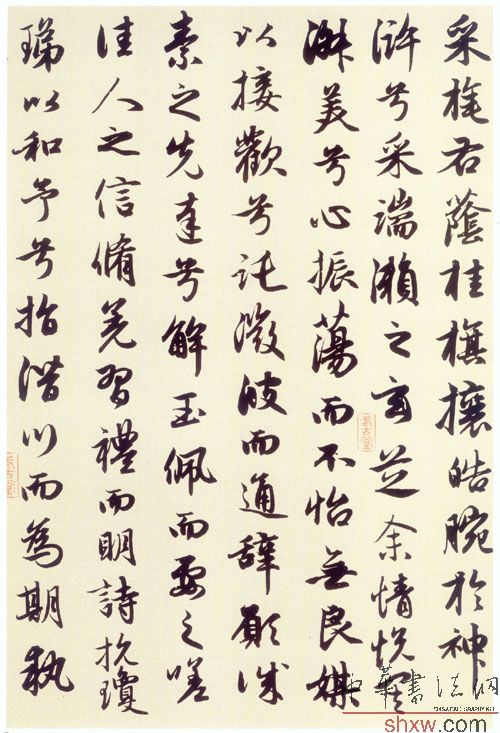 采旄右蔭桂旗攘皓腕於神
滸兮采湍瀨之玄芝余情悅其
淑美兮心振蕩而不怡無良媒
以接歡兮託微波而通辭願誠
素之先達兮解玉佩而要之嗟
佳人之信脩羌習禮而明詩抗瓊
珶以和予兮指潛川而為期執
中華書法網
shxw.com